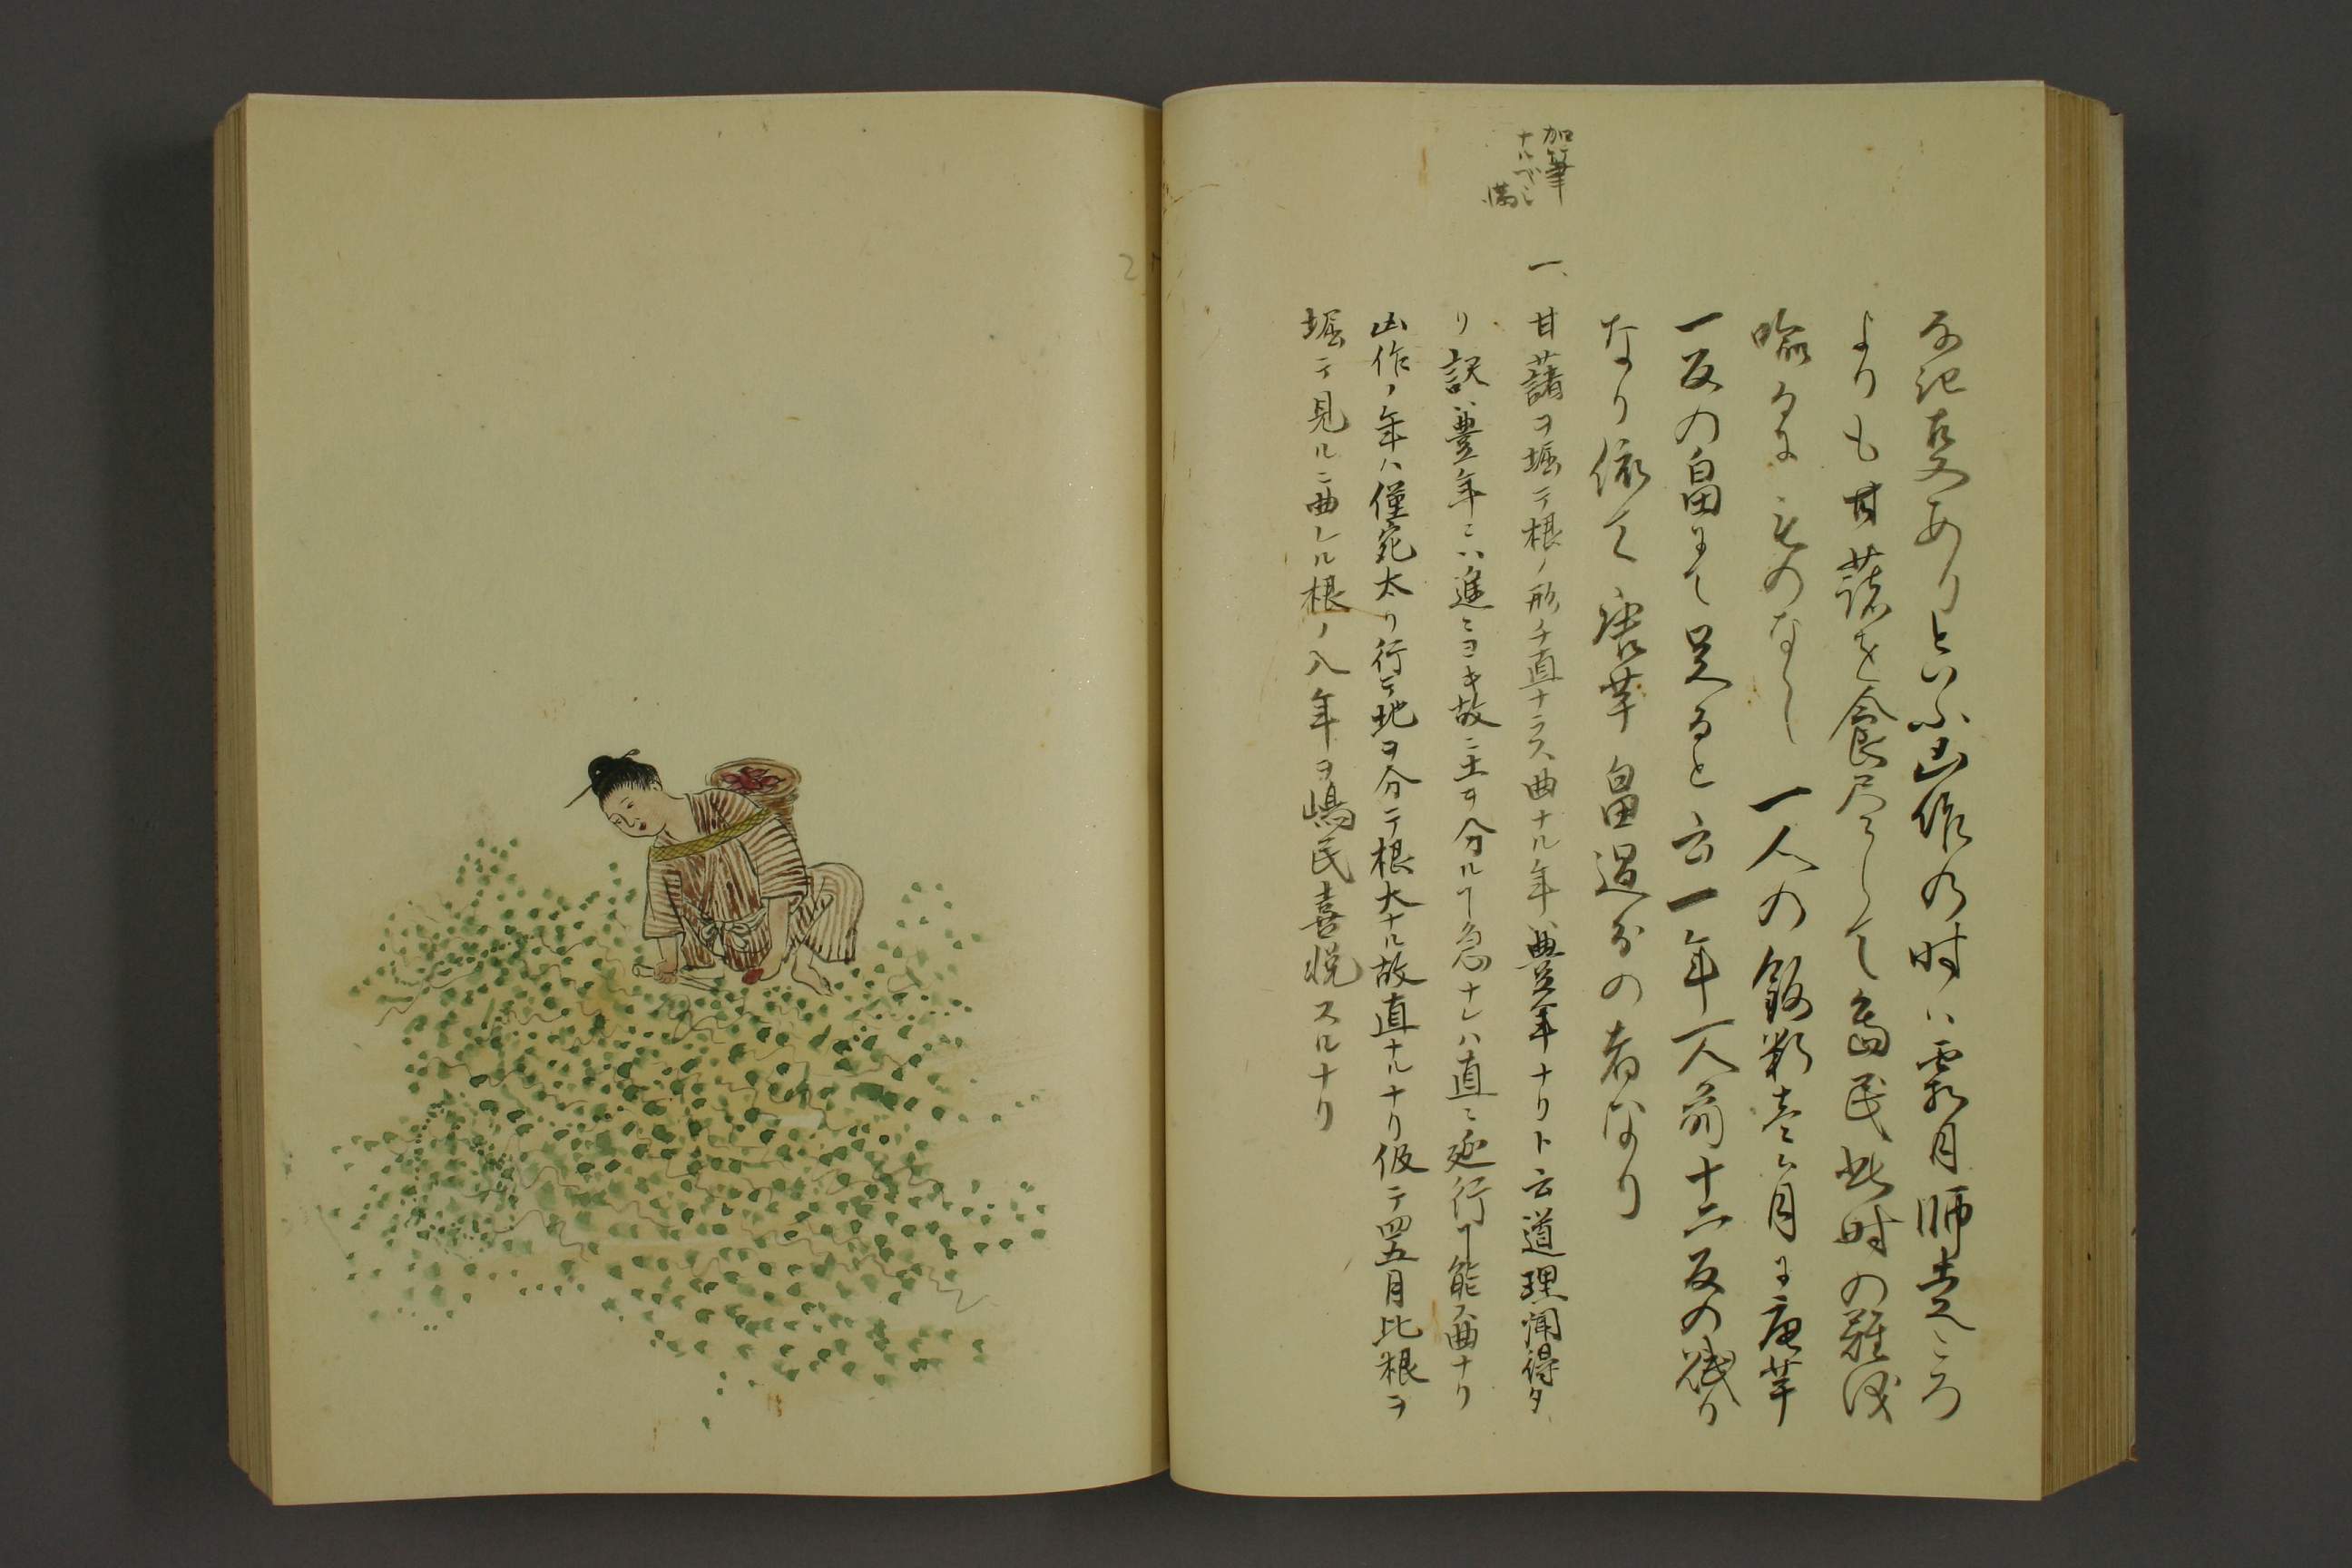 加筆
ナルベシ
満
あり といふ凶作の時ハ霜月師走ころ
よりも甘藷を食尽して島民此時の難渋
喩るに ものなし 一人の飯料壱ヶ月に唐芋
一反の畠にて足ると云一年一人前十二反の
なり依て唐芋畠過分の者なり
一、甘藷ヲ堀テ根ノ形チ直ナラス曲ナル年ハ豊年ナリト云道理聞得タ
リ訳ハ豊年ニハ進ミヨキ故ニ土ヲ分ルヿ急ナレハ直ニ延行ヿ能ス曲ナリ
凶作ノ年ハ僅宛太リ行テ地ヲ分テ根大ナル故直ナルナリ仮テ四五月比根ヲ
堀テ見ルニ曲レル根ノ入年ヲ嶋民喜悦スルナリ